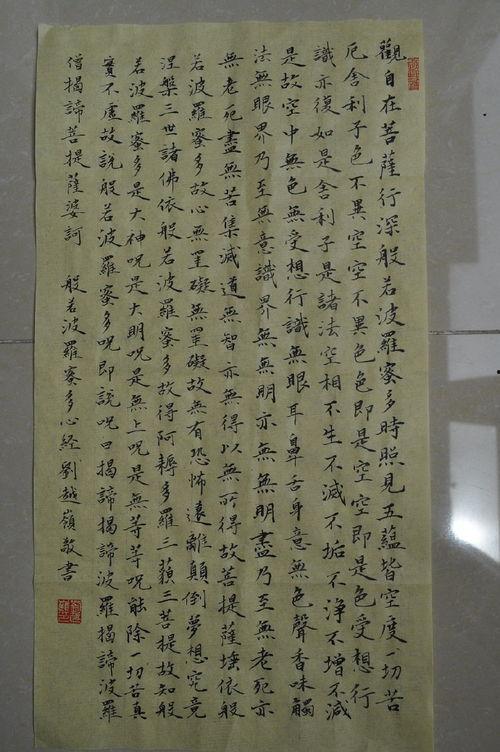 觀自在菩薩行深般若波羅蜜多時照見五蘊皆空度一切苦
厄舍利子色不異空空不異色色即是空空即是色受想行
識亦復如是舍利子是諸法空相不生不滅不垢不淨不增不減
是故空中無色無受想行識無眼耳鼻舌身意無色聲香味觸
法無眼界乃至無意識界無無明亦無無明盡乃至無老死亦
無老死盡無苦集滅道無智亦無得以無所得故菩提薩埵依般
若波羅蜜多故心無罣礙無罣礙故無有恐怖遠離顛倒夢想究竟
涅槃三世諸佛依般若波羅蜜多故得阿耨多羅三藐三菩提故知般
若波羅蜜多是大神呪是大明呪是無上呪是無等等呪能除一切苦真
實不虛故說般若波羅蜜多呪即說呪曰揭諦揭諦波羅揭諦波羅
僧揭諦菩提薩婆訶 般若波羅蜜多心經劉越嶺敬書